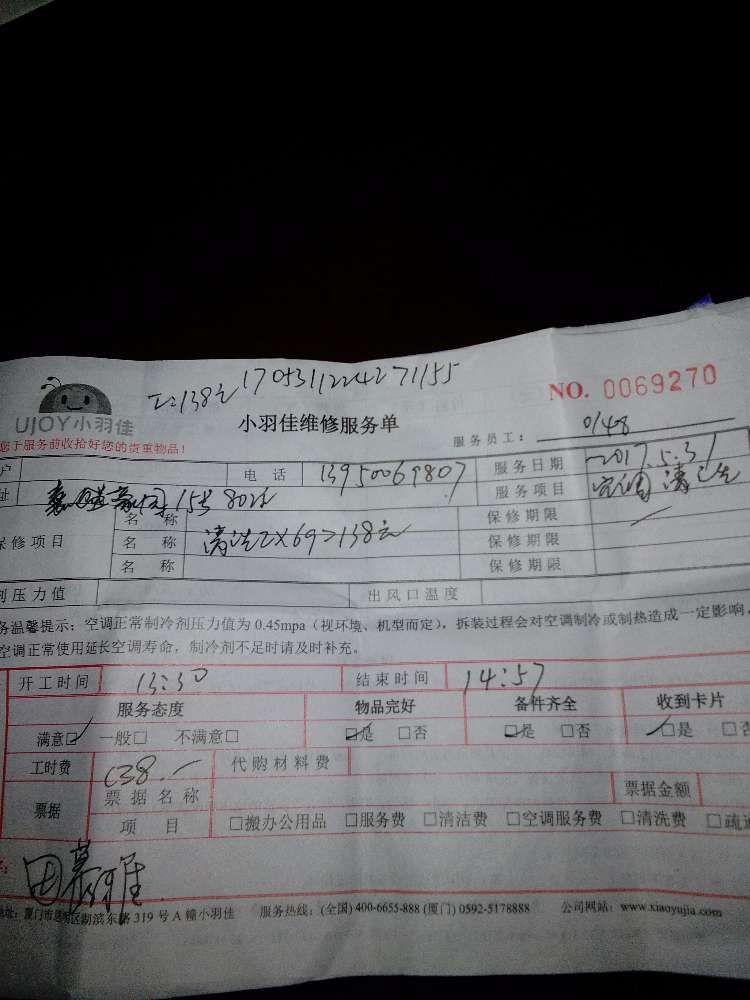 工:138元 1705311224271155
UJOY小羽佳
小羽佳维修服务单
NO. 0069270
您于服务前收拾好您的贵重物品!
服务员工: 0148
户 电 话 13950069807 服务日期 2017.5.31
址 155 服务项目 空调清洗
名 称 保修期限
保修项目 名 称 清洗2×69=138元 保修期限
名 称 保修期限
剂压力值 出风口温度
务温馨提示:空调正常制冷剂压力值为 0.45mpa(视环境、机型而定),拆装过程会对空调制冷或制热造成一定影响,
空调正常使用延长空调寿命,制冷剂不足时请及时补充。
开工时间 13:30 结束时间 14:57
服务态度 物品完好 备件齐全 收到卡片
满意☑ 一般□ 不满意□ ☑是 □否 ☑是 □否 ☑是 □否
工时费 138.— 代购材料费
票据 票据名称 票据金额
项 目 □搬办公用品 □服务费 □清洁费 □空调服务费 □清洗费 □疏通
田慕雅
地址:厦门市思明区湖滨东路 319 号 A 幢小羽佳 服务热线:(全国) 400-6655-888 (厦门) 0592-5178888 公司网站:www.xiaoyujia.com